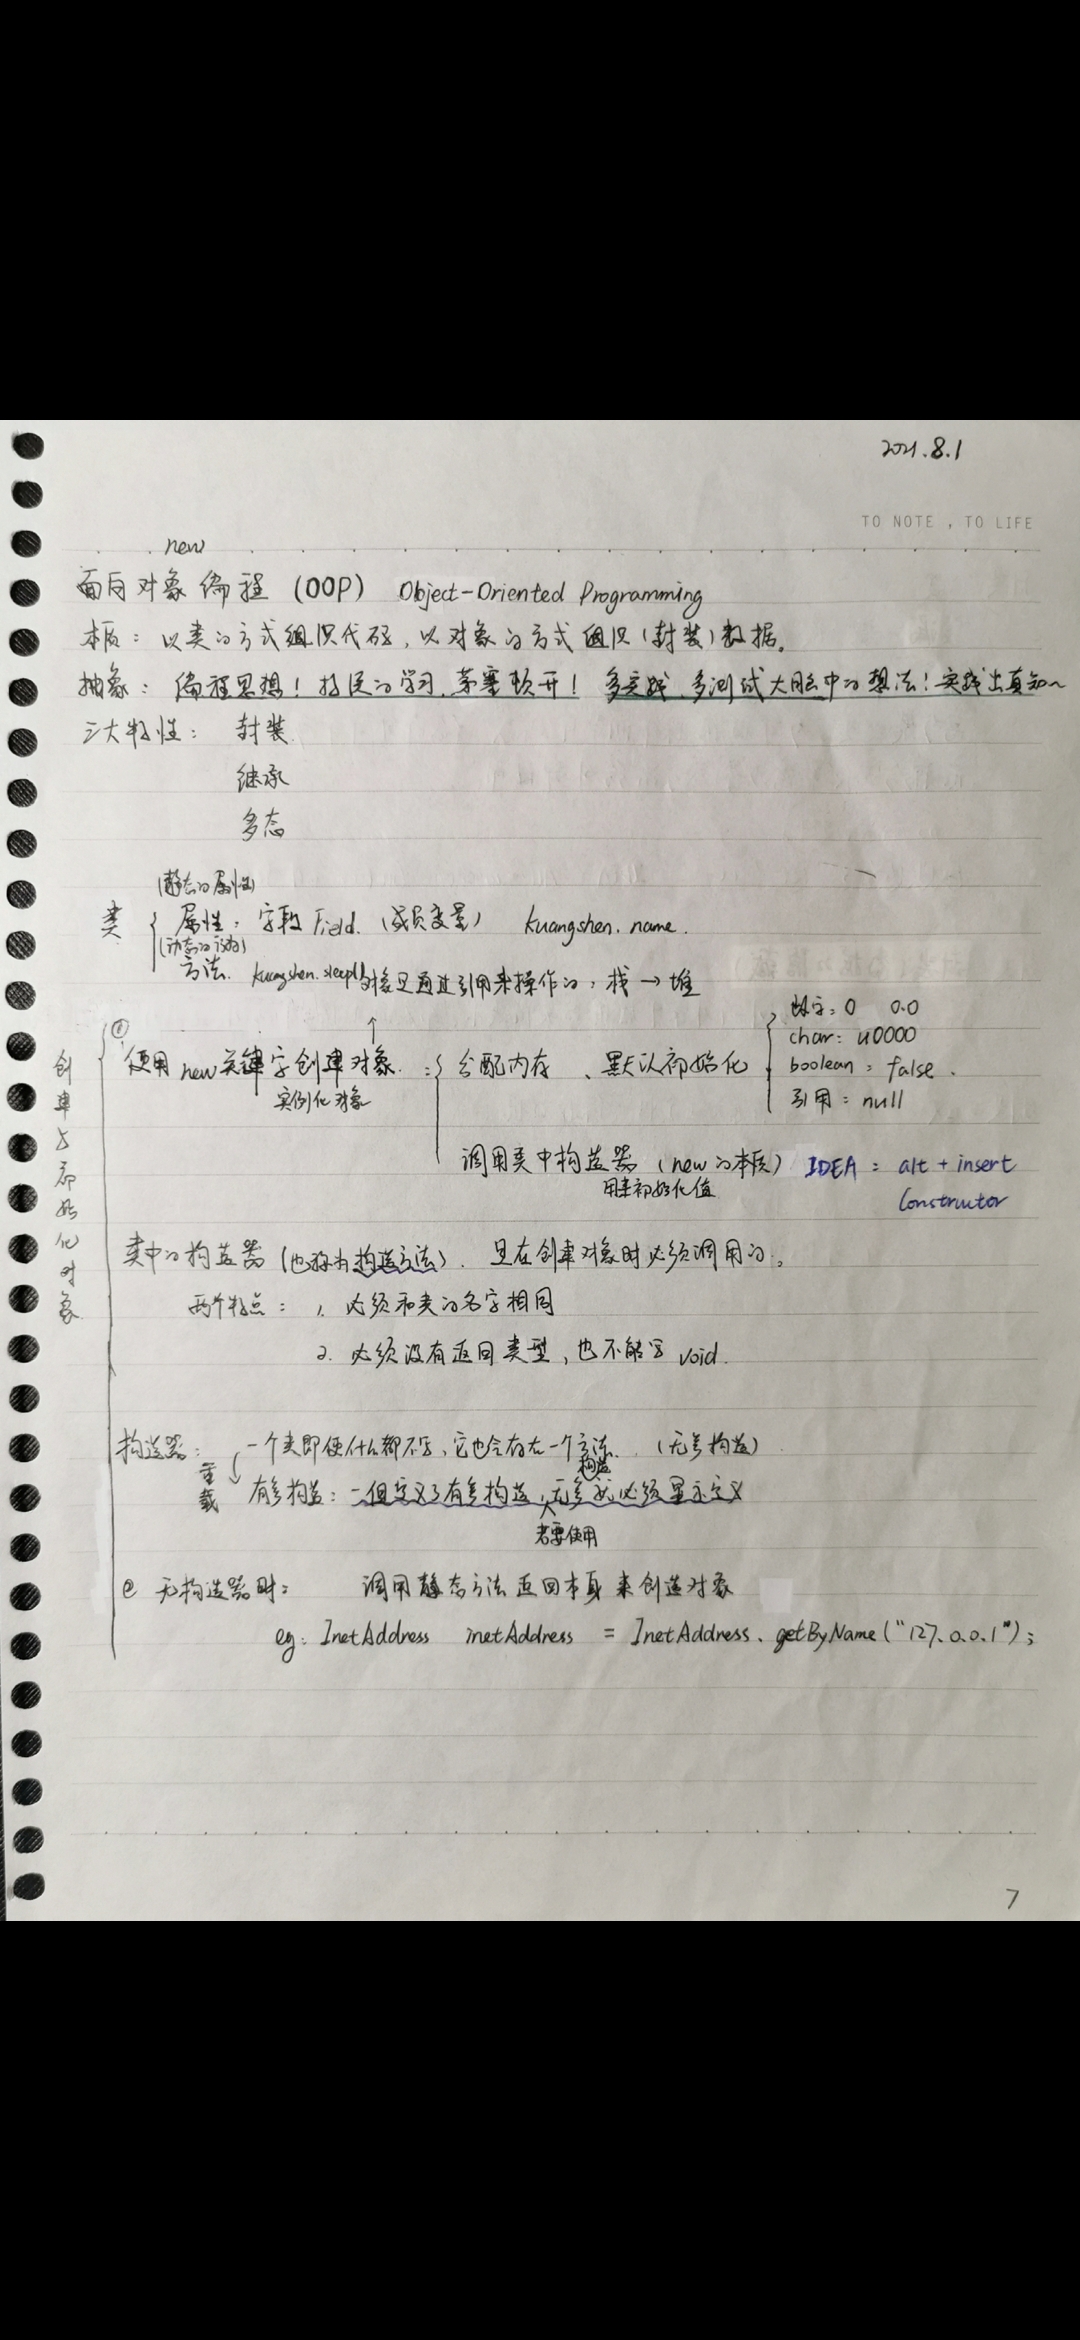 2021.8.1
TO NOTE , TO LIFE
new
面向对象编程 (OOP) Object-Oriented Programming
本质：以类的方式组织代码，以对象的方式组织(封装)数据。
抽象：编程思想！持续的学习，茅塞顿开！多实践，多测试大脑中的想法！实践出真知～
三大特性：封装
继承
多态
(静态的属性)
类 属性：字段Field.(成员变量) kuangshen.name.
(动态的行为)
方法. kuangshen.sleep()
对象是通过引用来操作的，栈→堆
创建与初始化对象
① 使用new关键字创建对象. ：分配内存、默认初始化
实例化对象
数字：0 0.0
char：u0000
boolean：false.
引用：null
调用类中构造器(new的本质) IDEA：alt + insert
用来初始化值
Constructor
类中的构造器(也称为构造方法). 是在创建对象时必须调用的。
两个特点：1. 必须和类的名字相同
2. 必须没有返回类型，也不能写void.
构造器：一个类即使什么都不写，它也会存在一个方法. (无参构造)
构造
重载
有参构造：一但定义了有参构造，无参就必须显示定义
若要使用
② 无构造器时： 调用静态方法返回本身来创造对象
eg: InetAddress inetAddress = InetAddress.getByName("127.0.0.1");
7